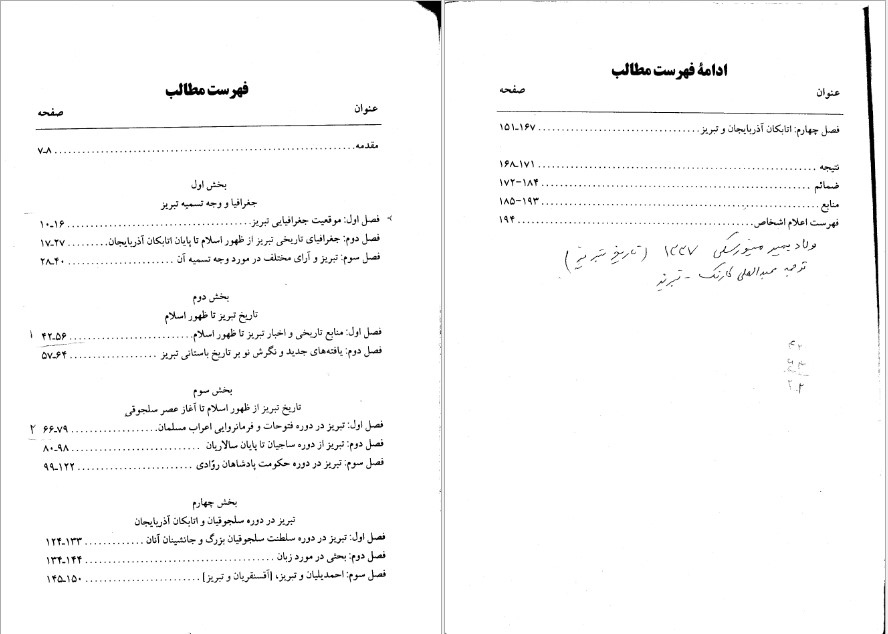 فهرست مطالب
عنوان صفحه
مقدمه ۷ـ۸
بخش اول
جغرافیا و وجه تسمیه تبریز
فصل اول: موقعیت جغرافیایی تبریز ۱۰ـ۱۶
فصل دوم: جغرافیای تاریخی تبریز از ظهور اسلام تا پایان اتابکان آذربایجان ۱۷ـ۲۷
فصل سوم: تبریز و آرای مختلف در مورد وجه تسمیه آن ۲۸ـ۴۰
بخش دوم
تاریخ تبریز تا ظهور اسلام
فصل اول: منابع تاریخی و اخبار تبریز تا ظهور اسلام ۴۲ـ۵۶ ۱
فصل دوم: یافته‌های جدید و نگرش نو بر تاریخ باستانی تبریز ۵۷ـ۶۴
بخش سوم
تاریخ تبریز از ظهور اسلام تا آغاز عصر سلجوقی
فصل اول: تبریز در دوره فتوحات و فرمانروایی اعراب مسلمان ۶۶ـ۷۹ ۲
فصل دوم: تبریز از دوره ساجیان تا پایان سالاریان ۸۰ـ۹۸
فصل سوم: تبریز در دوره حکومت پادشاهان روّادی ۹۹ـ۱۲۲
بخش چهارم
تبریز در دوره سلجوقیان و اتابکان آذربایجان
فصل اول: تبریز در دوره سلطنت سلجوقیان بزرگ و جانشینان آنان ۱۲۴ـ۱۳۳
فصل دوم: بحثی در مورد زبان ۱۳۴ـ۱۴۴
فصل سوم: احمدیلیان و تبریز، [آقسنقریان و تبریز] ۱۴۵ـ۱۵۰
ادامهٔ فهرست مطالب
عنوان صفحه
فصل چهارم: اتابکان آذربایجان و تبریز ۱۵۱ـ۱۶۷
نتیجه ۱۶۸ـ۱۷۱
ضمائم ۱۷۲-۱۸۴
منابع ۱۸۵-۱۹۳
فهرست اعلام اشخاص ۱۹۴
ولادیمیر مینورسکی ۱۳۳۷ (تاریخ تبریز)
ترجمه عبدالعلی کارنگ - تبریز